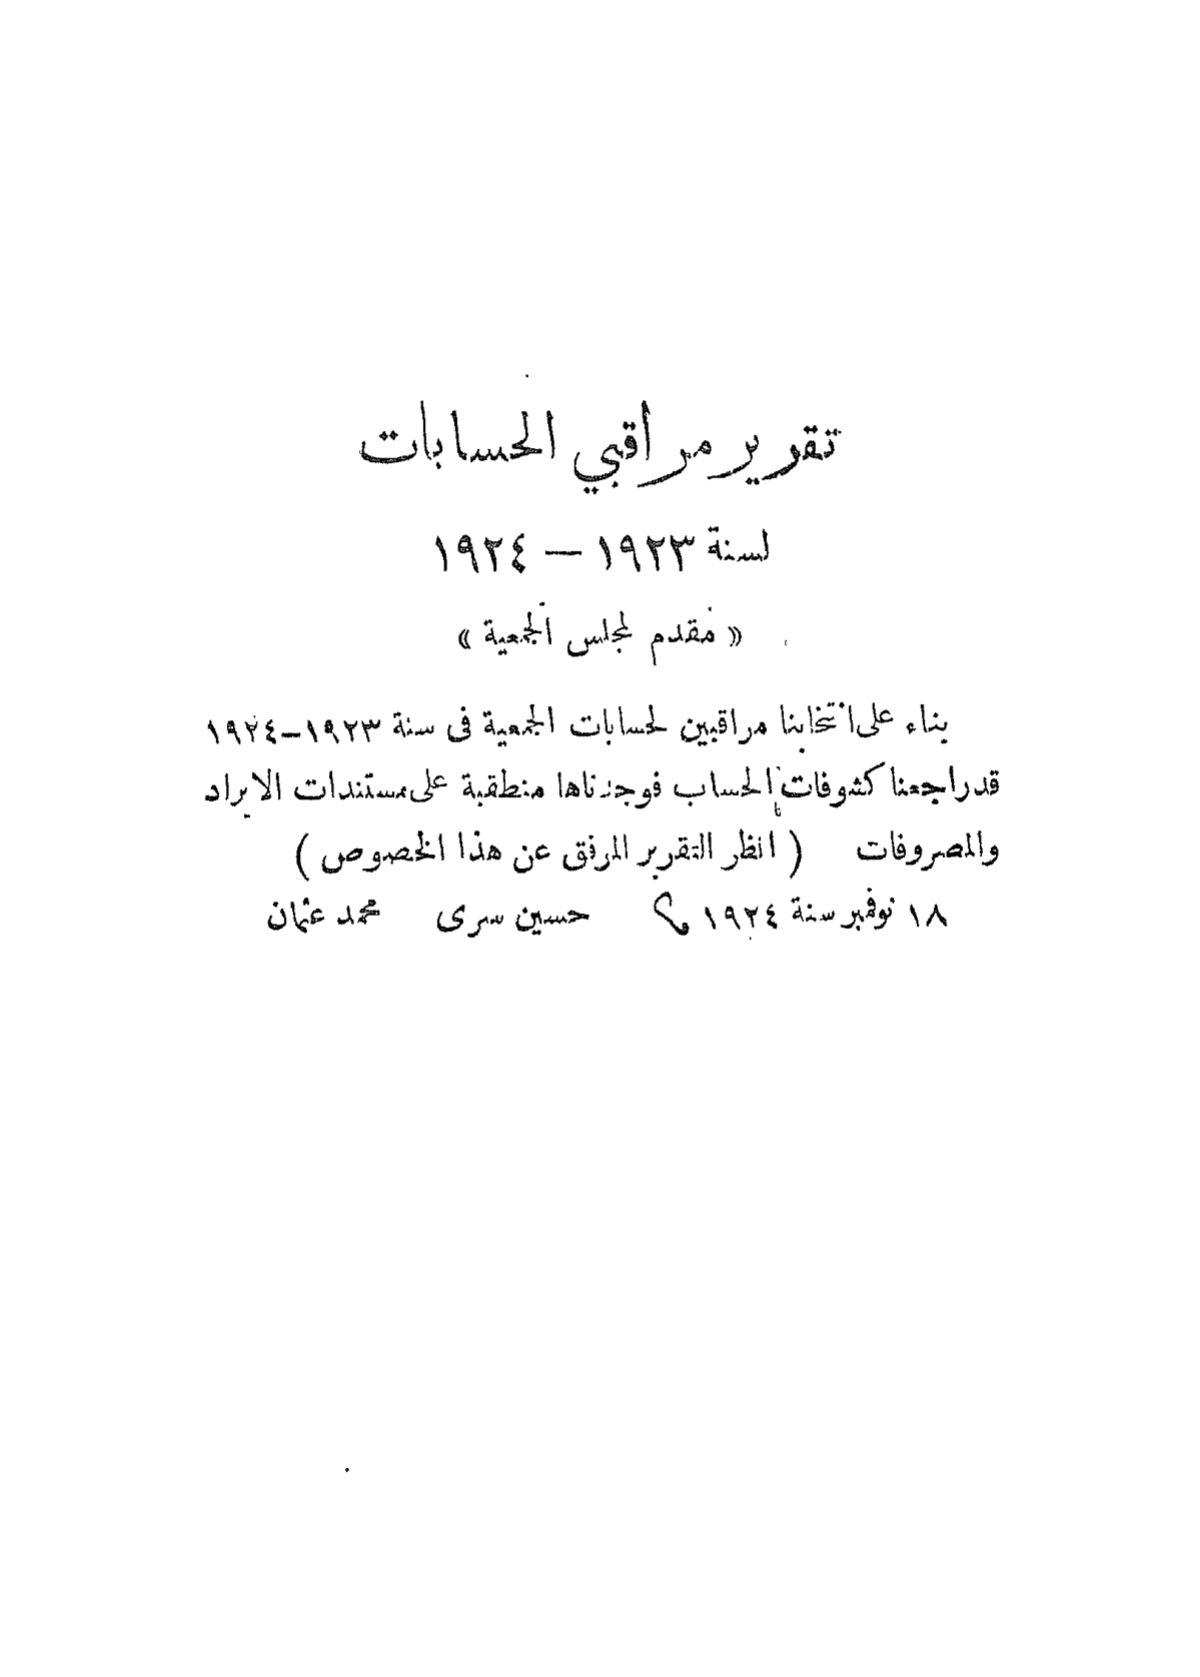 تقرير مراقبي الحسابات
لسنة ١٩٢٣ — ١٩٢٤
« مقدم لمجلس الجمعية »
بناء على انتخابنا مراقبين لحسابات الجمعية فى سنة ١٩٢٣–١٩٢٤
قد راجعنا كشوفات الحساب فوجدناها منطقبة على مستندات الايراد
والمصروفات ( انظر التقرير المرفق عن هذا الخصوص )
١٨ نوفمبر سنة ١٩٢٤ حسين سرى محمد عثمان